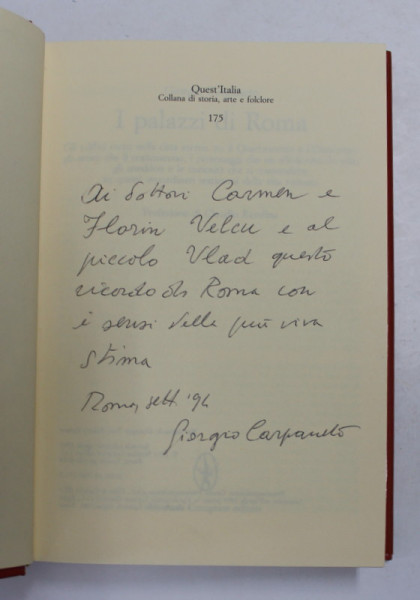 Quest'Italia
Collana di storia, arte e folclore
175
I palazzi di Roma
Ai dottori Carmen e
Florin Velcu e al
piccolo Vlad questo
ricordo di Roma con
i sensi della più viva
stima
Roma, sett. '94
Giorgio Carpaneto